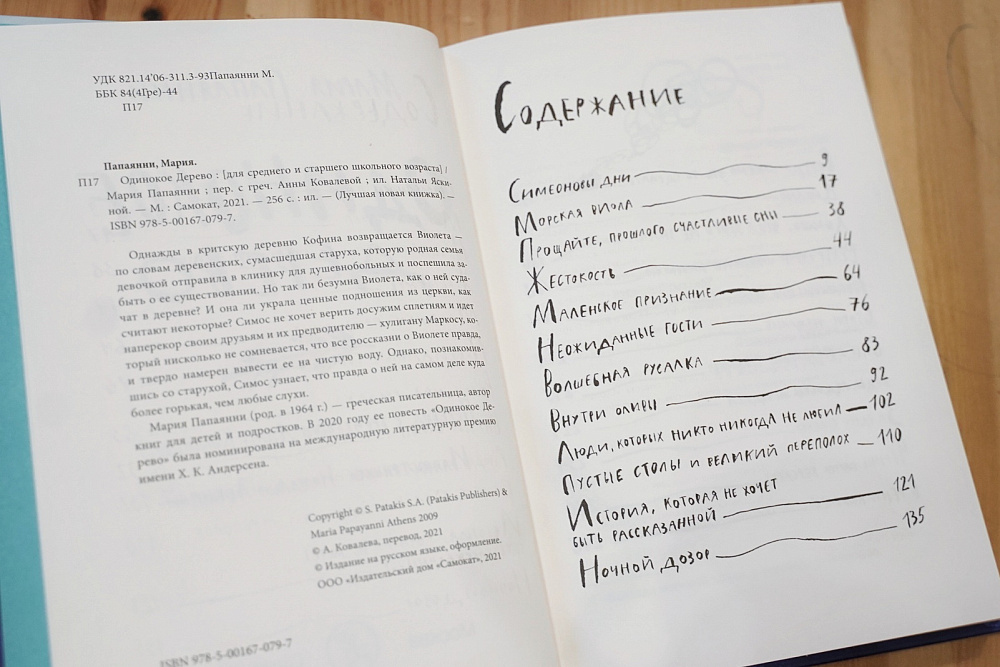 УДК 821.14'06-311.3-93Папаянни М.
ББК 84(4Гре)-44
П17
Папаянни, Мария.
П17 Одинокое Дерево : [для среднего и старшего школьного возраста] /
Мария Папаянни ; пер. с греч. Анны Ковалевой ; ил. Натальи Яски-
ной. — М. : Самокат, 2021. — 256 с. : ил. — (Лучшая новая книжка). —
ISBN 978-5-00167-079-7.
Однажды в критскую деревню Кофина возвращается Виолета —
по словам деревенских, сумасшедшая старуха, которую родная семья
девочкой отправила в клинику для душевнобольных и поспешила за-
быть о ее существовании. Но так ли безумна Виолета, как о ней суда-
чат в деревне? И она ли украла ценные подношения из церкви, как
считают некоторые? Симос не хочет верить досужим сплетням и идет
наперекор своим друзьям и их предводителю — хулигану Маркосу, ко-
торый нисколько не сомневается, что все россказни о Виолете правда,
и твердо намерен вывести ее на чистую воду. Однако, познакомив-
шись со старухой, Симос узнает, что правда о ней на самом деле куда
более горькая, чем любые слухи.
Мария Папаянни (род. в 1964 г.) — греческая писательница, автор
книг для детей и подростков. В 2020 году ее повесть «Одинокое Де-
рево» была номинирована на международную литературную премию
имени Х. К. Андерсена.
Copyright © S. Patakis S.A. (Patakis Publishers) &
Maria Papayanni Athens 2009
© А. Ковалева, перевод, 2021
© Издание на русском языке, оформление.
ООО «Издательский дом «Самокат», 2021
ISBN 978-5-00167-079-7
Содержание
Симеоновы дни 9
Морская виола 17
Прощайте, прошлого счастливые сны 38
Жестокость 44
Маленское признание 64
Неожиданные гости 76
Волшебная русалка 83
Внутри оливы 92
Люди, которых никто никогда не любил 102
Пустые столы и великий переполох 110
История, которая не хочет
быть рассказанной 121
Ночной дозор 135